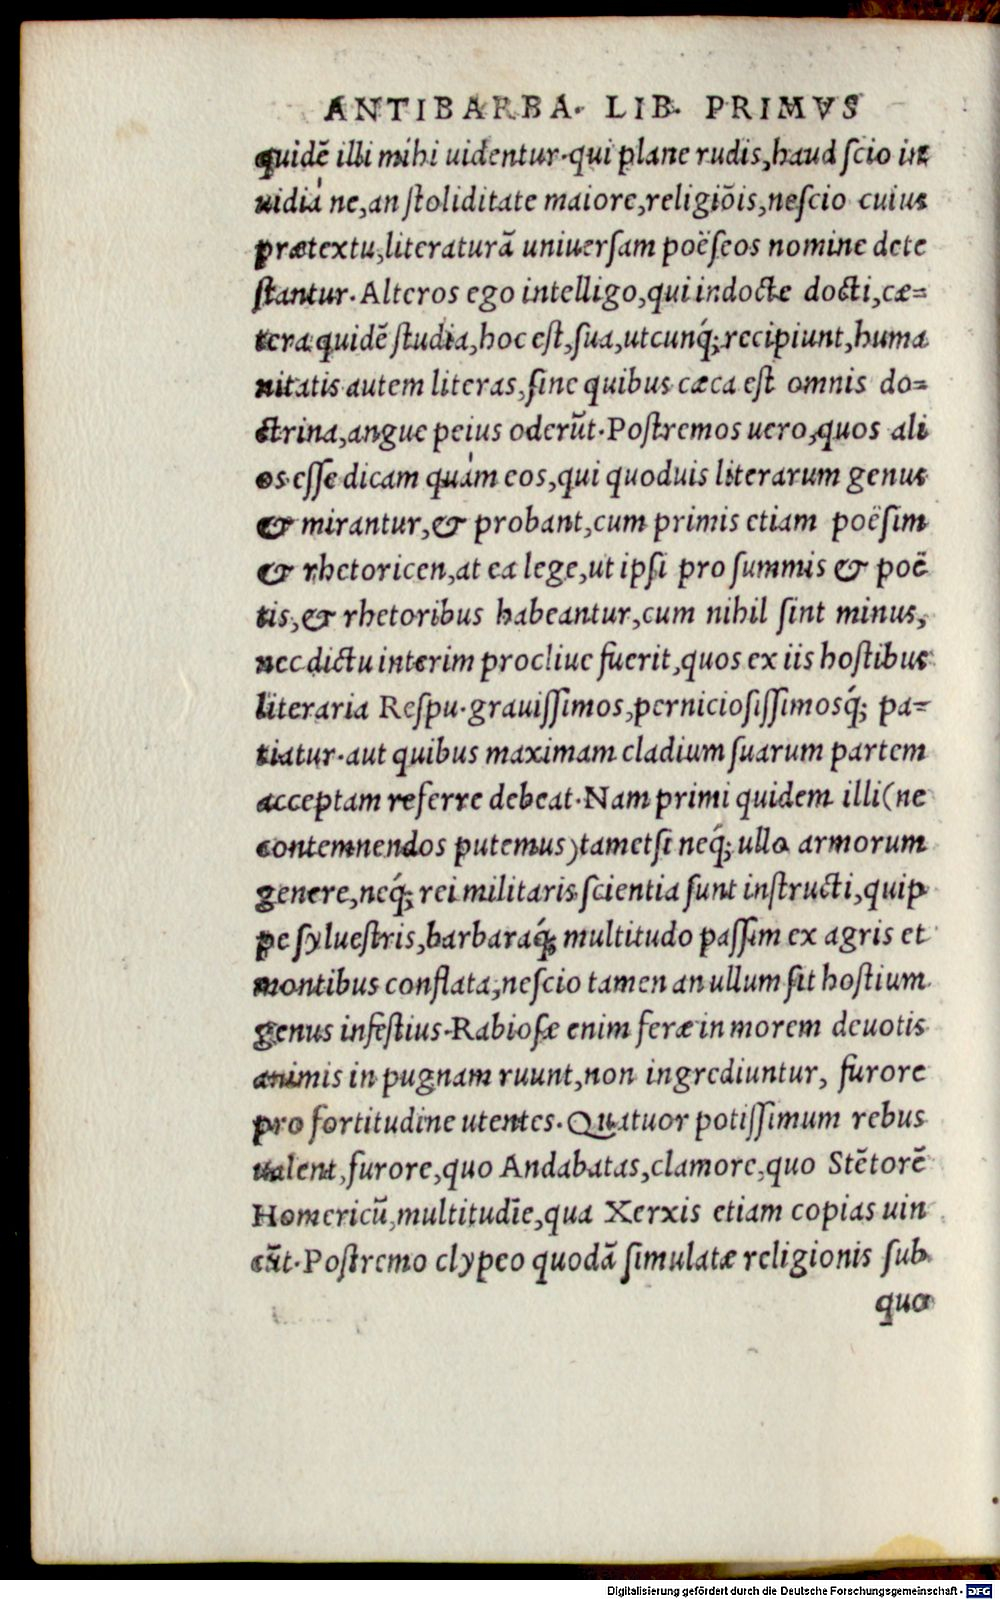 ANTIBARBA. LIB. PRIMVS
quidẽ illi mihi uidentur.qui plane rudis,haud scio in
uidia ne,an stoliditate maiore,religiõis,nescio cuius
prætextu,literaturã uniuersam poëseos nomine dete
stantur.Alteros ego intelligo,qui indocte docti,cæ=
tera quidẽ studia,hoc est,sua,utcunq́;recipiunt,huma
nitatis autem literas,sine quibus cæca est omnis do=
ctrina,angue peius oderũt.Postremos uero,quos ali
os esse dicam quàm eos,qui quoduis literarum genus
& mirantur,& probant,cum primis etiam poësim
& rhetoricen,at ea lege,ut ipsi pro summis & poë
tis,& rhetoribus habeantur,cum nihil sint minus,
nec dictu interim procliue fuerit,quos ex iis hostibus
literaria Respu.grauissimos,perniciosissimosq́; pa=
tiatur.aut quibus maximam cladium suarum partem
acceptam referre debeat.Nam primi quidem illi(ne
contemnendos putemus)tametsi neq́; ullo armorum
genere,neq́; rei militaris scientia sunt instructi,quip
pe syluestris,barbaraq́; multitudo passim ex agris et
montibus conflata,nescio tamen an ullum sit hostium
genus infestius.Rabiosæ enim feræ in morem deuotis
animis in pugnam ruunt,non ingrediuntur, furore
pro fortitudine utentes. Quatuor potissimum rebus
ualent,furore,quo Andabatas,clamore,quo Stẽtorẽ
Homericũ,multitudĩe,qua Xerxis etiam copias uin
cũt.Postremo clypeo quodã simulatæ religionis sub
quo
Digitalisierung gefördert durch die Deutsche Forschungsgemeinschaft - DFG